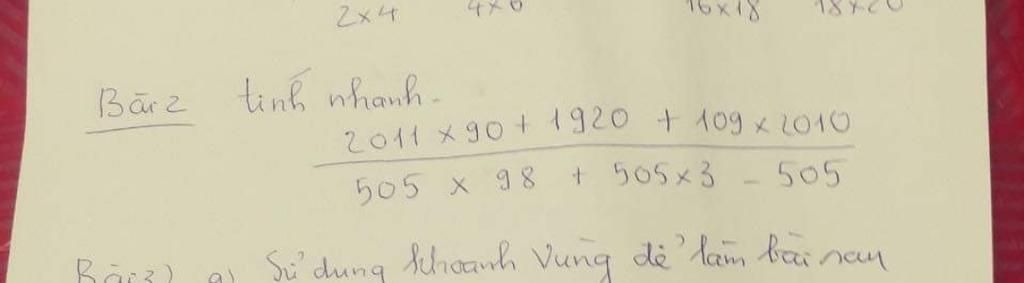 2x4 4x6 16x18 18x20
Bài 2 tính nhanh.
2011 x 90 + 1920 + 109 x 2010
505 x 98 + 505 x 3 - 505
Bài 3) a) Sử dụng khoanh vùng để làm bài sau